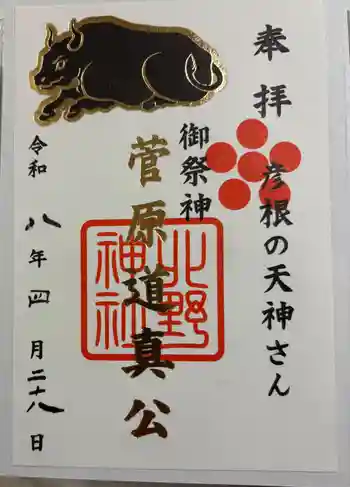 奉拝
彦根の天神さん
御祭神
菅原道真公
北野神社
令和八年四月二十八日